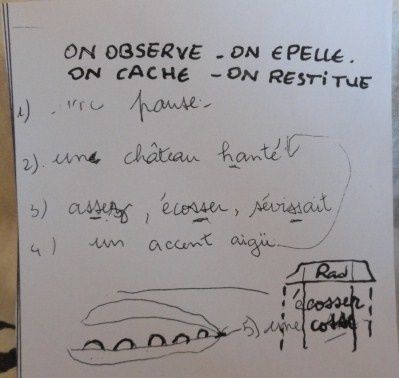 ON OBSERVE - ON EPELLE.
ON CACHE - ON RESTITUE
1) une pause.
2). une château hanté
3) assez, écosser, sévissait
4) un accent aigüe
Rad
écosser
5) une cosse